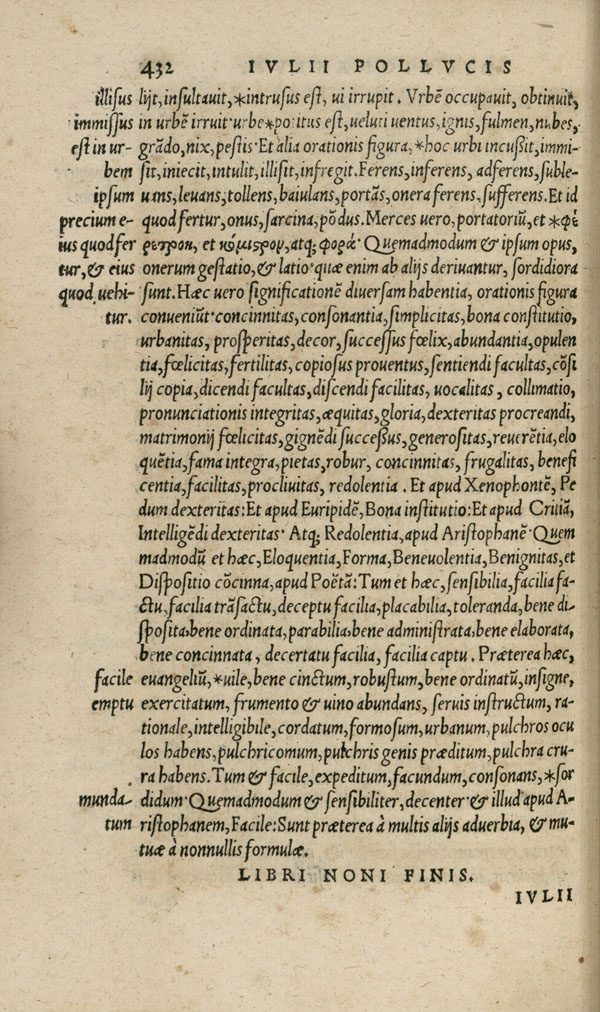 432 IVLII POLLVCIS
illisus
immissus
est in ur-
bem
ipsum
precium e-
ius quod fer
tur, & eius
quod uehi-
tur.
lijt, insultauit, *intrusus est, ui irrupit. Vrbē occupauit, obtinuit,
in urbē irruit· urbe *positus est, ueluti uentus, ignis, fulmen, nubes,
grādo, nix, pestis· Et alia orationis figura, *hoc urbi incußit, immi-
sit, iniecit, intulit, illisit, infregit. Ferens, inferens, adferens, suble-
uans, leuans, tollens, baiulans, portās, onera ferens, sufferens. Et id
quod fertur, onus, sarcina, pōdus. Merces uero, portatoriū, et *φέ
ρετρον, et κόμιστρον, atq; φορά· Quemadmodum & ipsum opus,
onerum gestatio, & latio· quæ enim ab alijs deriuantur, sordidiora
sunt. Hæc uero significationē diuersam habentia, orationis figura
conueniūt· concinnitas, consonantia, simplicitas, bona constitutio,
urbanitas, prosperitas, decor, successus fœlix, abundantia, opulen
tia, fœlicitas, fertilitas, copiosus prouentus, sentiendi facultas, cōsi
lij copia, dicendi facultas, discendi facilitas, uocalitas, collimatio,
pronunciationis integritas, æquitas, gloria, dexteritas procreandi,
matrimonij fœlicitas, gignēdi succeßus, generositas, reuerētia, elo
quētia, fama integra, pietas, robur, concinnitas, frugalitas, benefi
centia, facilitas, procliuitas, redolentia. Et apud Xenophontē, Pe
dum dexteritas: Et apud Euripidē, Bona institutio: Et apud Critiā,
Intelligēdi dexteritas· Atq; Redolentia, apud Aristophanē· Quem
madmodū et hæc, Eloquentia, Forma, Beneuolentia, Benignitas, et
Dispositio cōcinna, apud Poëtā: Tum et hæc, sensibilia, facilia fa-
ctu, facilia trāsactu, deceptu facilia, placabilia, toleranda, bene di-
sposita, bene ordinata, parabilia, bene administrata, bene elaborata,
bene concinnata, decertatu facilia, facilia captu. Præterea hæc,
facile
emptu
euangeliū, *uile, bene cinctum, robustum, bene ordinatū, insigne,
exercitatum, frumento & uino abundans, seruis instructum, ra-
tionale, intelligibile, cordatum, formosum, urbanum, pulchros ocu
los habens, pulchricomum, pulchris genis præditum, pulchra cru-
ra habens. Tum & facile, expeditum, facundum, consonans, *sor
munda-
tum
didum· Quemadmodum & sensibiliter, decenter· & illud apud A-
ristophanem, Facile: Sunt præterea à multis alijs aduerbia, & mu-
tuæ à nonnullis formulæ.
LIBRI NONI FINIS.
IVLII